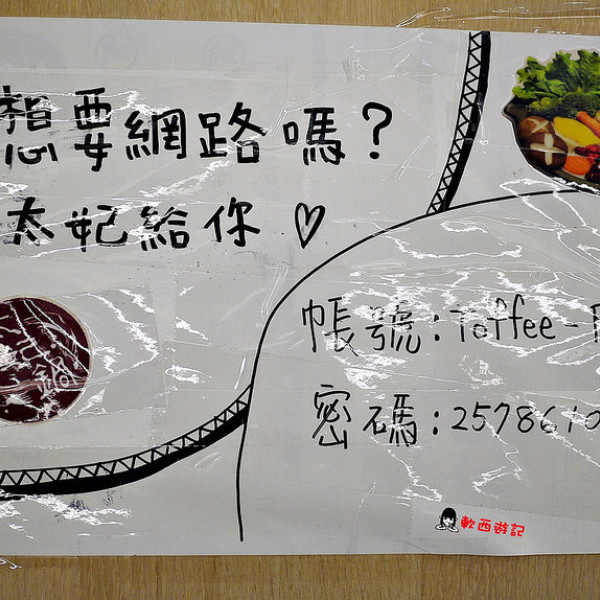 想要網路嗎?
太妃給你♡
帳號:Toffee-
密碼:2578610
軟西遊記